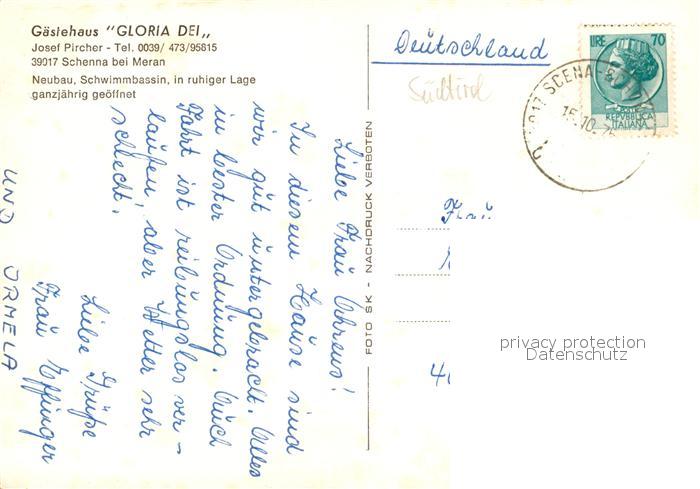 Gästehaus "GLORIA DEI„
Josef Pircher - Tel. 0039/ 473/95815
39017 Schenna bei Meran
Neubau, Schwimmbassin, in ruhiger Lage
ganzjährig geöffnet
Liebe Frau Ahrens!
In diesem Hause sind
wir gut untergebracht. Alles
in bester Ordnung. Auch
Fahrt ist reibungslos ver-
laufen, aber Wetter sehr
schlecht.
Liebe Grüße
Frau Effinger
UND ORMELA
FOTO SK - NACHDRUCK VERBOTEN
Deutschland
Südtirol
LIRE 70
REPVBBLICA
ITALIANA
SCENA
15.10
Frau
privacy protection
Datenschutz